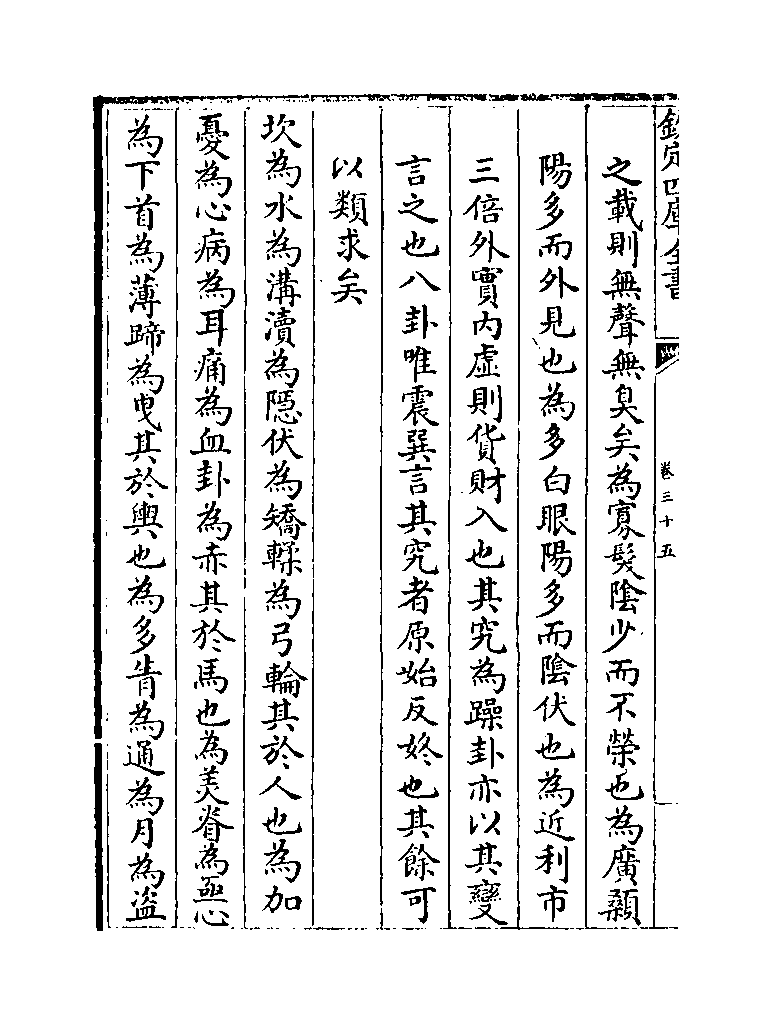 欽定四庫全書
卷三十五
之載則無聲無臭矣為寡髮陰少而不榮也為廣顙
陽多而外見也為多白眼陽多而陰伏也為近利市
三倍外實内虛則貨財入也其究為躁卦亦以其變
言之也八卦唯震巽言其究者原始反終也其餘可
以類求矣
坎為水為溝瀆為隱伏為矯輮為弓輪其於人也為加
憂為心病為耳痛為血卦為赤其於馬也為美脊為亟心
為下首為薄蹄為曳其於輿也為多眚為通為月為盜